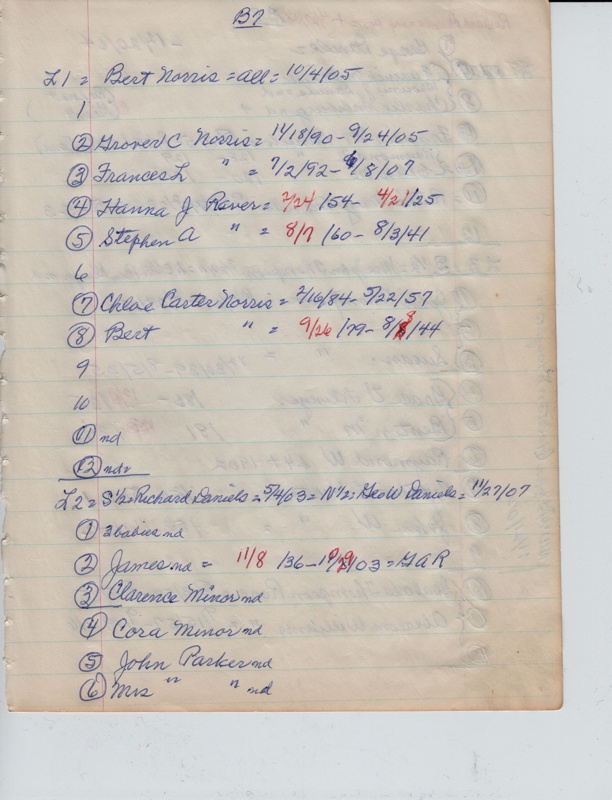 B7
L1 = Bert Norris = all = 10/4/05
1
2 Grover C Norris = 11/18/90 - 9/24/05
3 Frances L " = 7/2/92 - /8/07
4 Hanna J Raver = 2/24/54 - 4/21/25
5 Stephen A " = 8/7/60 - 8/3/41
6
7 Chloe Carter Norris = 2/16/84 - 5/22/57
8 Bert " = 9/26/79 - 8/8/44
9
10
11 nd
12 nd
L2 = S 1/2 = Richard Daniels = 5/4/03 = N 1/2 = Geo W Daniels = 11/27/07
1 2 babies nd
2 James nd = 11/8/36 - /03 = GAR
3 Clarence Minor nd
4 Cora Minor nd
5 John Parker nd
6 Mrs " " nd